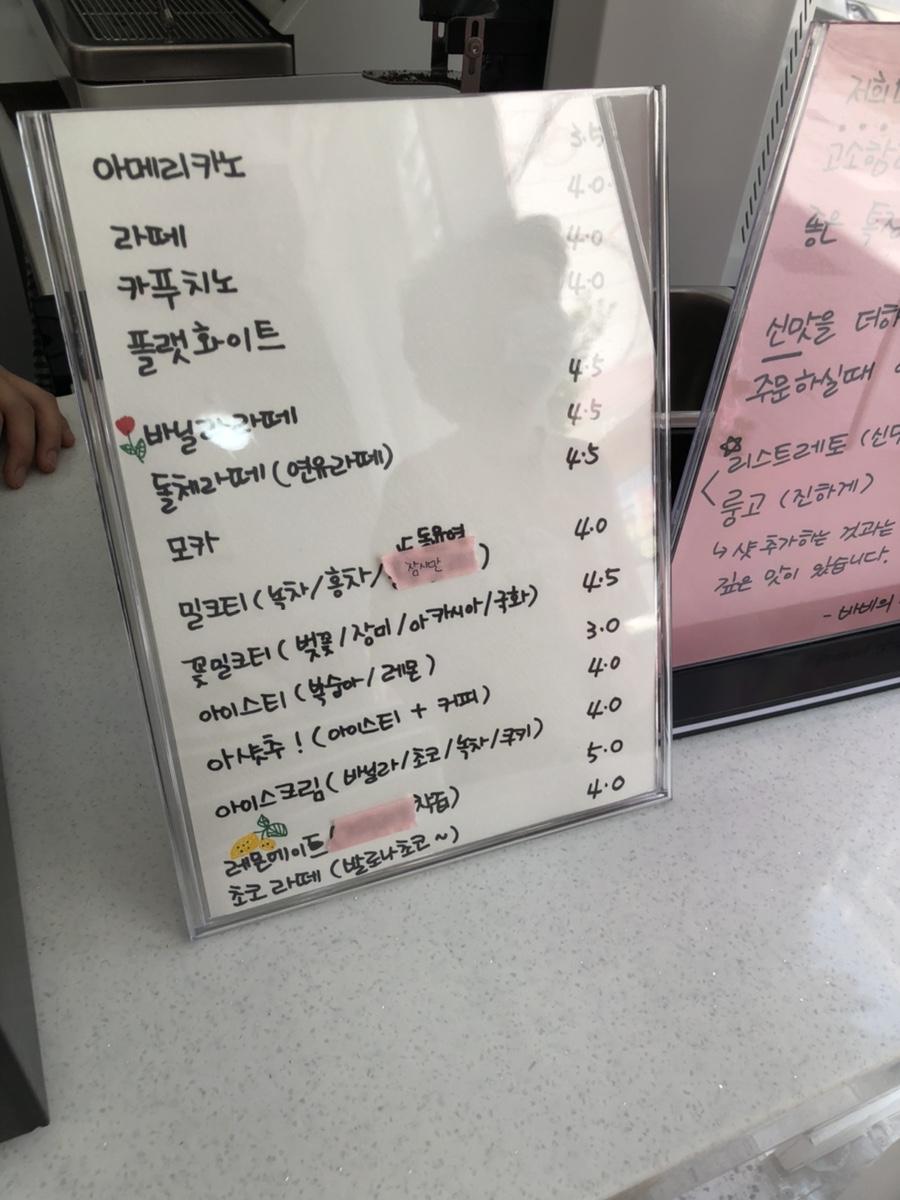 아메리카노 3.5
라떼 4.0
카푸치노 4.0
플랫화이트 4.0
바닐라라떼 4.5
돌체라떼 (연유라떼) 4.5
모카 4.5
밀크티 (녹차/홍차/ 잠시만 ) 4.0
꽃밀크티 (벚꽃/장미/아카시아/국화) 4.5
아이스티 (복숭아/레몬) 3.0
아샷추! (아이스티 + 커피) 4.0
아이스크림 (바닐라/초코/녹차/쿠키) 4.0
레몬에이드 ( 착즙) 5.0
초코라떼 (발로나초코~) 4.0
저희
고소함
좋은
신맛을 더
주문하실때
리스트레토 (신
룽고 (진하게)
↳ 샷추가하는 것과는
깊은 맛이 있습니다.